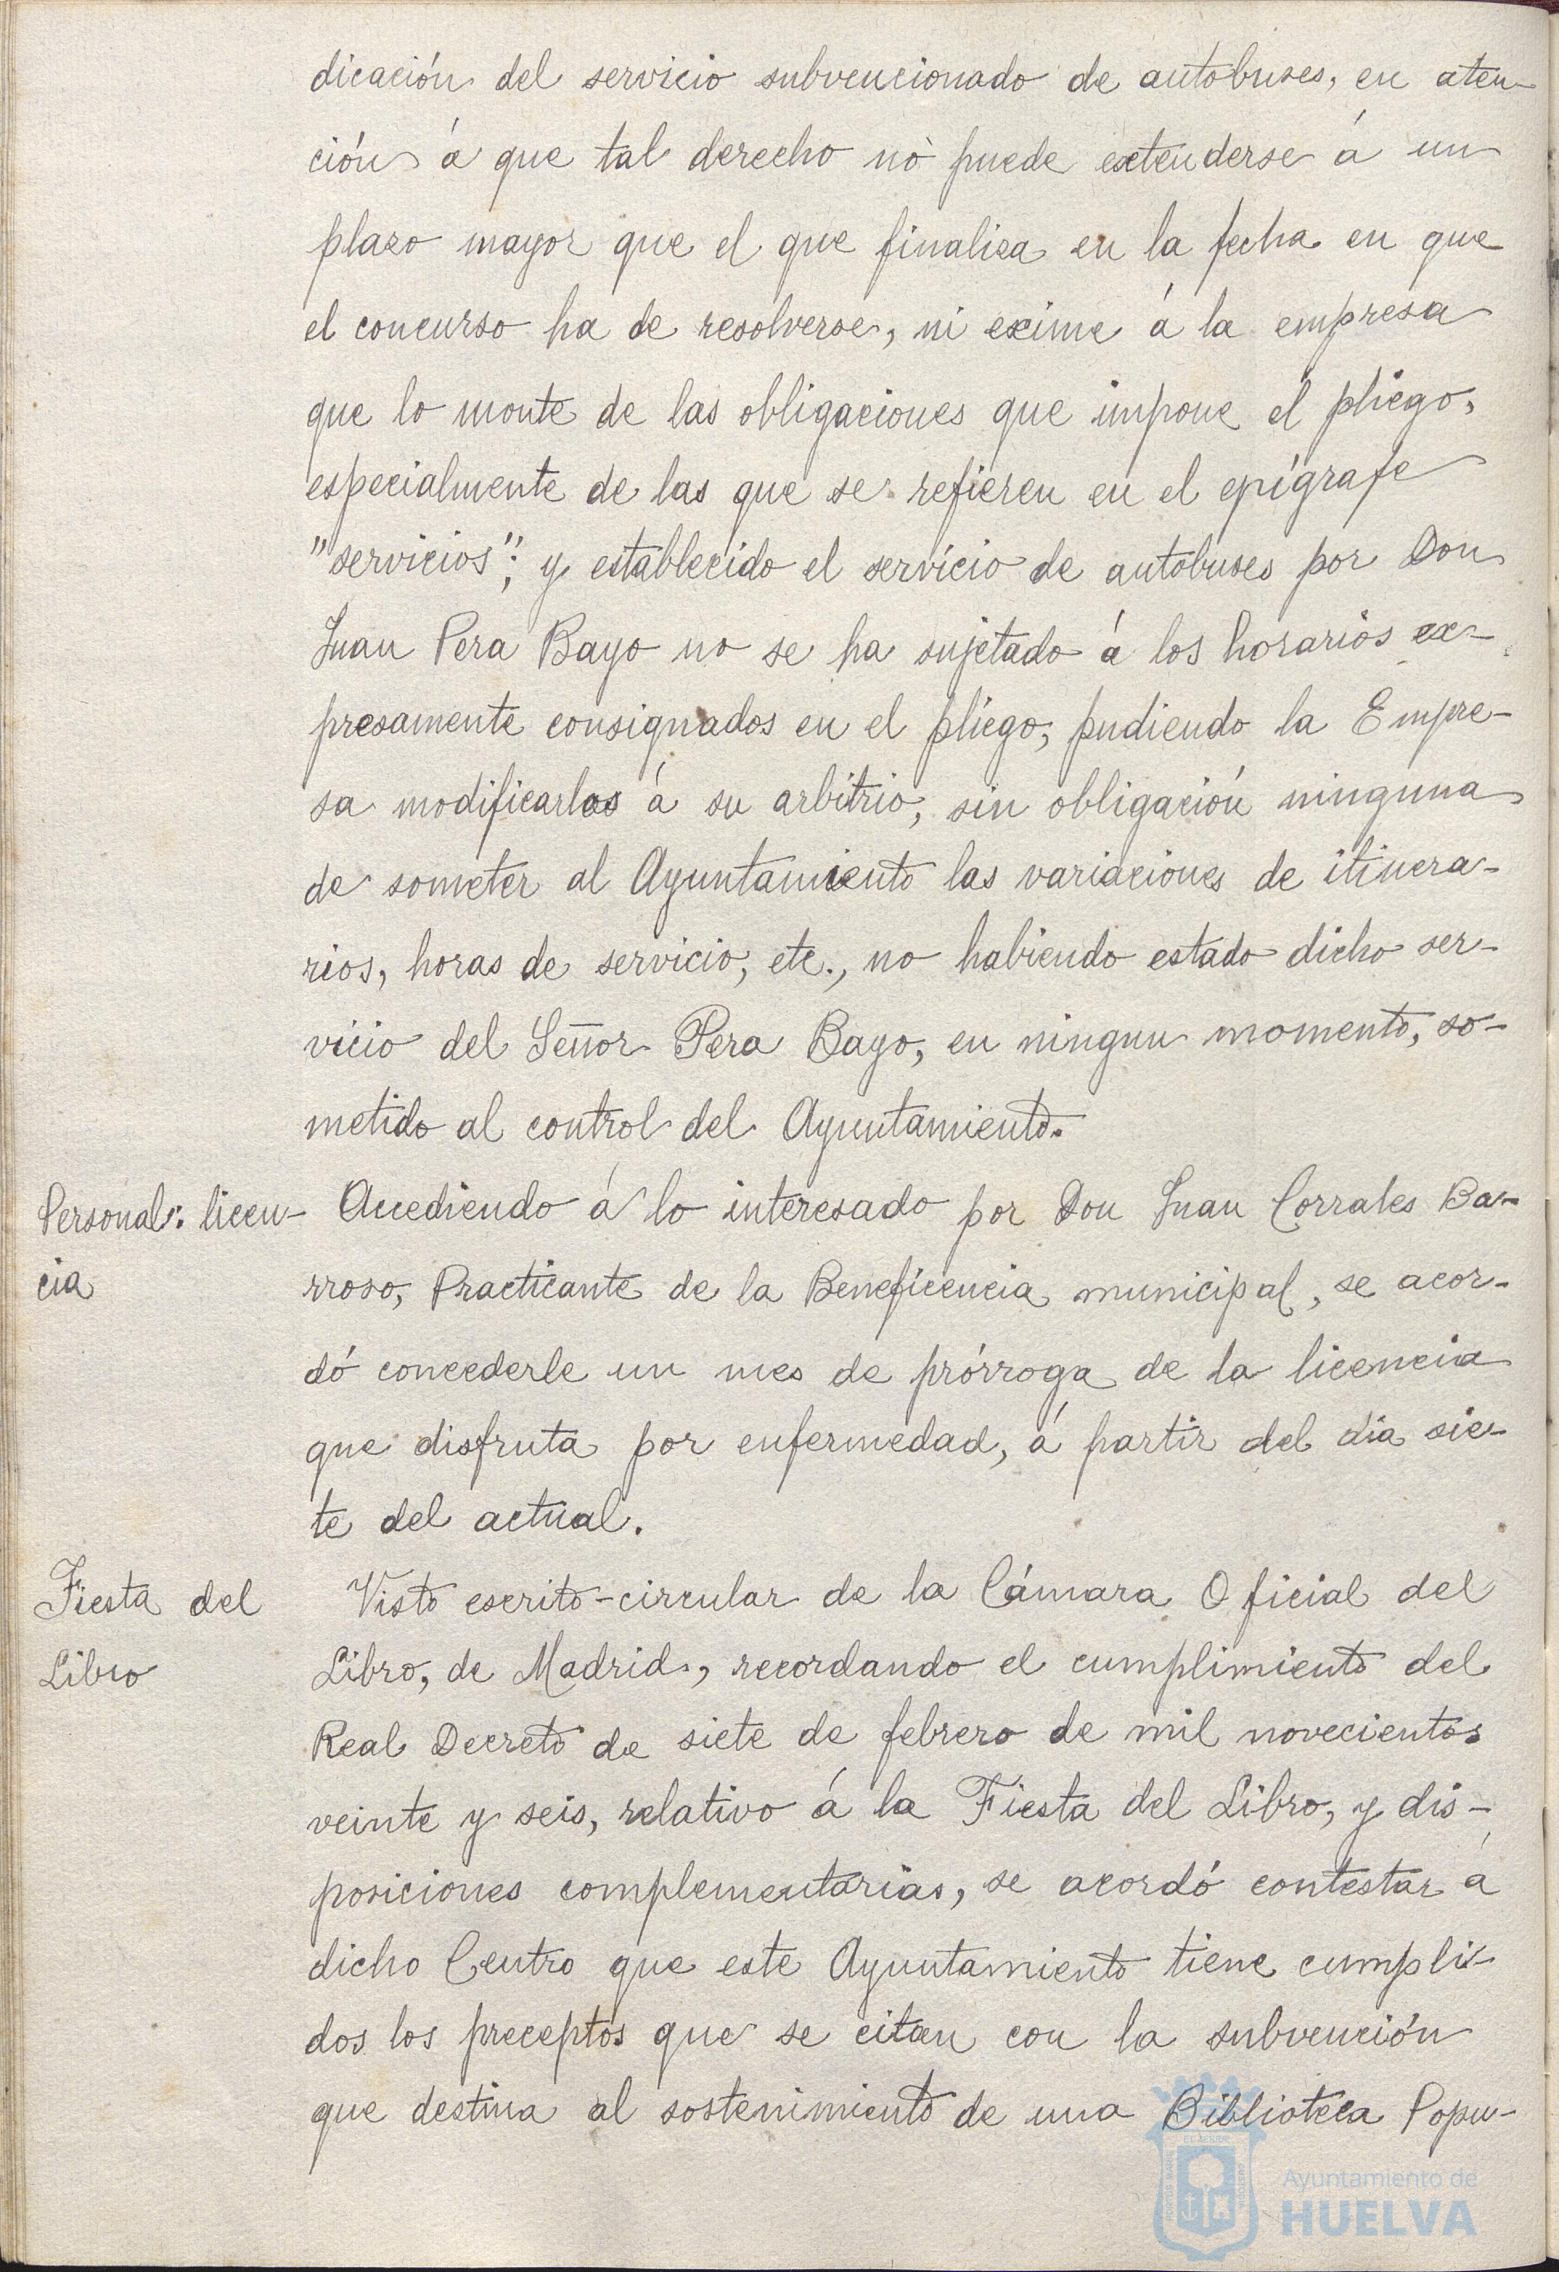 dicación del servicio subvencionado de autobuses, en aten-
ción á que tal derecho nò puede extenderse á un
plazo mayor que el que finaliza en la fecha en que
el concurso ha de resolverse, ni exime á la empresa
que lo monte de las obligaciones que impone el pliego,
especialmente de las que se refieren en el epígrafe
"servicios"; y establecido el servicio de autobuses por Don
Juan Pera Bayo no se ha sujetado á los horarios ex-
presamente consignados en el pliego, pudiendo la Empre-
sa modificarlos á su arbitrio, sin obligación ninguna
de someter al Ayuntamiento las variaciones de itinera-
rios, horas de servicio, etc., no habiendo estado dicho ser-
vicio del Señor Pera Bayo, en ningun momento, so-
metido al control del Ayuntamiento.
Personal: licen-
cia
Accediendo á lo interesado por Don Juan Corrales Ba-
rroso, Practicante de la Beneficencia municipal, se acor-
dó concederle un mes de prórroga de la licencia
que disfruta por enfermedad, á partir del día sie-
te del actual.
Fiesta del
Libro
Visto escrito-circular de la Cámara Oficial del
Libro, de Madrid, recordando el cumplimiento del
Real Decreto de siete de febrero de mil novecientos
veinte y seis, relativo á la Fiesta del Libro, y dis-
posiciones complementarias, se acordó contestar á
dicho Centro que este Ayuntamiento tiene cumpli-
dos los preceptos que se citan con la subvención
que destina al sostenimiento de una Biblioteca Popu-
Ayuntamiento de
HUELVA